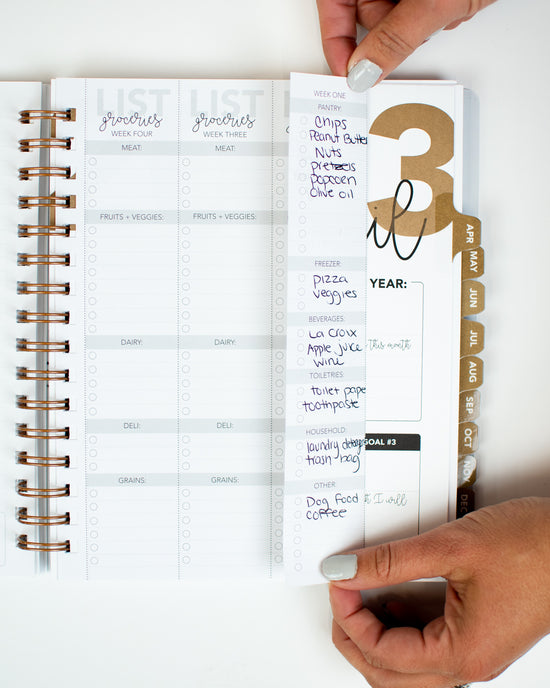 LIST
groceries
WEEK FOUR
MEAT:
FRUITS + VEGGIES:
DAIRY:
DELI:
GRAINS:
LIST
groceries
WEEK THREE
MEAT:
FRUITS + VEGGIES:
DAIRY:
DELI:
GRAINS:
WEEK ONE
PANTRY
Chips
Peanut Butter
Nuts
pretzels
popcorn
Olive oil
FREEZER:
pizza
veggies
BEVERAGES:
La Croix
Apple juice
wine
TOILETRIES
toilet pape
toothpaste
HOUSEHOLD:
laundry
trash bag
OTHER:
Dog Food
coffee
3
YEAR:
this month
GOAL #3
I will
APR
MAY
JUN
JUL
AUG
SEP
OCT
NOV
DEC